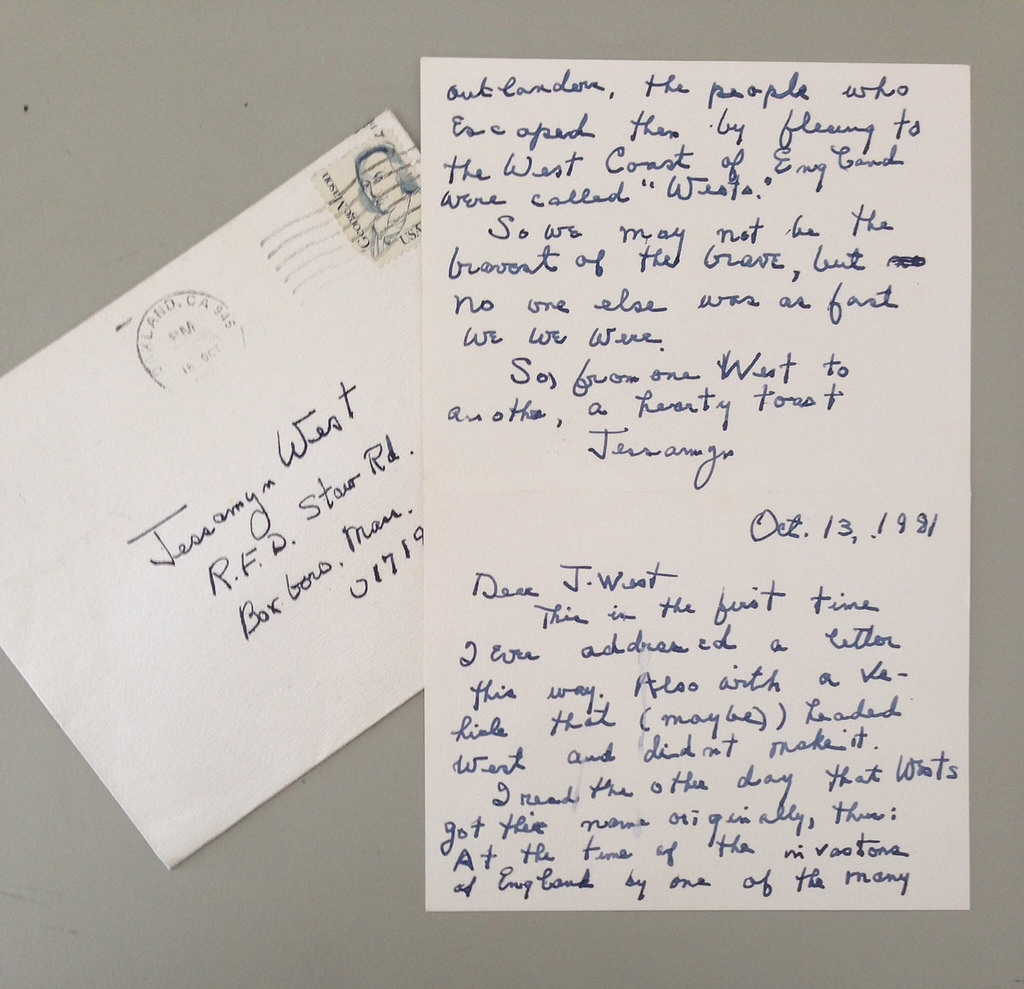 George Mason
USA
LAND, CA 946
PM
OCT
Jessamyn West
R.F.D. Stow Rd.
Boxboro. Mass.
01719
outlanders, the people who
Escaped them by fleeing to
the West Coast of England
were called "Wests."
So we may not be the
bravest of the brave, but
no one else was as fast
we we were.
So, from one West to
another, a hearty toast
Jessamyn
Oct. 13, 1981
Dear J. West
This is the first time
I ever addressed a letter
this way. Also with a ve-
hicle that (maybe)) headed
West and didn't make it.
I read the other day that Wests
got their name originally, thus:
At the time of the invasions
of England by one of the many